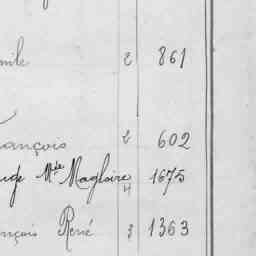 mile 2 861
rançois 2 602
uge Mde Magloire 4 1675
nçois René 3 1363